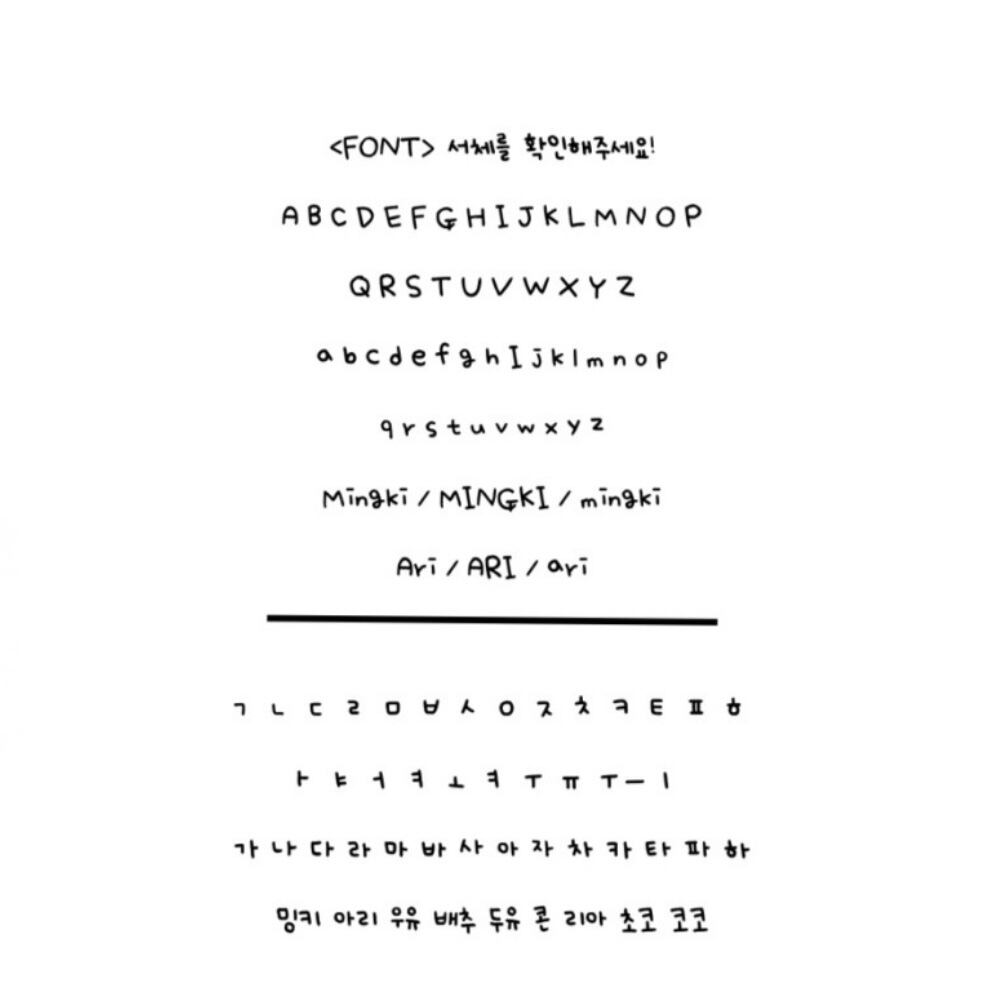 <FONT> 서체를 확인해주세요!
A B C D E F G H I J K L M N O P
Q R S T U V W X Y Z
a b c d e f g h I j k l m n o p
q r s t u v w x y z
Mingki / MINGKI / mingki
Ari / ARI / ari
ㄱ ㄴ ㄷ ㄹ ㅁ ㅂ ㅅ ㅇ ㅈ ㅊ ㅋ ㅌ ㅍ ㅎ
ㅏ ㅑ ㅓ ㅕ ㅗ ㅕ ㅜ ㅠ ㅜ ㅡ ㅣ
가 나 다 라 마 바 사 아 자 차 카 타 파 하
밍키 아리 우유 배추 두유 콘 리아 초코 코코